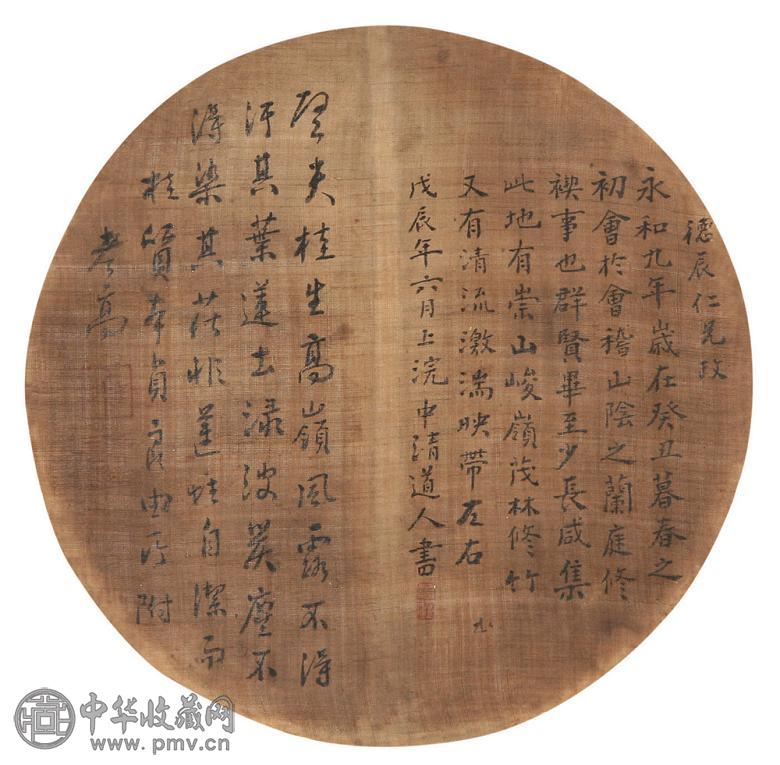 德辰仁兄政
永和九年歲在癸丑暮春之
初會於會稽山陰之蘭庭修
禊事也群賢畢至少長咸集
此地有崇山峻嶺茂林修竹
又有清流激湍映帶左右
戊辰年六月上浣中清道人書
譬夫桂生高嶺風露不得
汙其葉蓮出淥波炎塵不
得染其花非蓮性自潔而
桂質本貞良由所附
者高
中华收藏网
www.pmv.cn